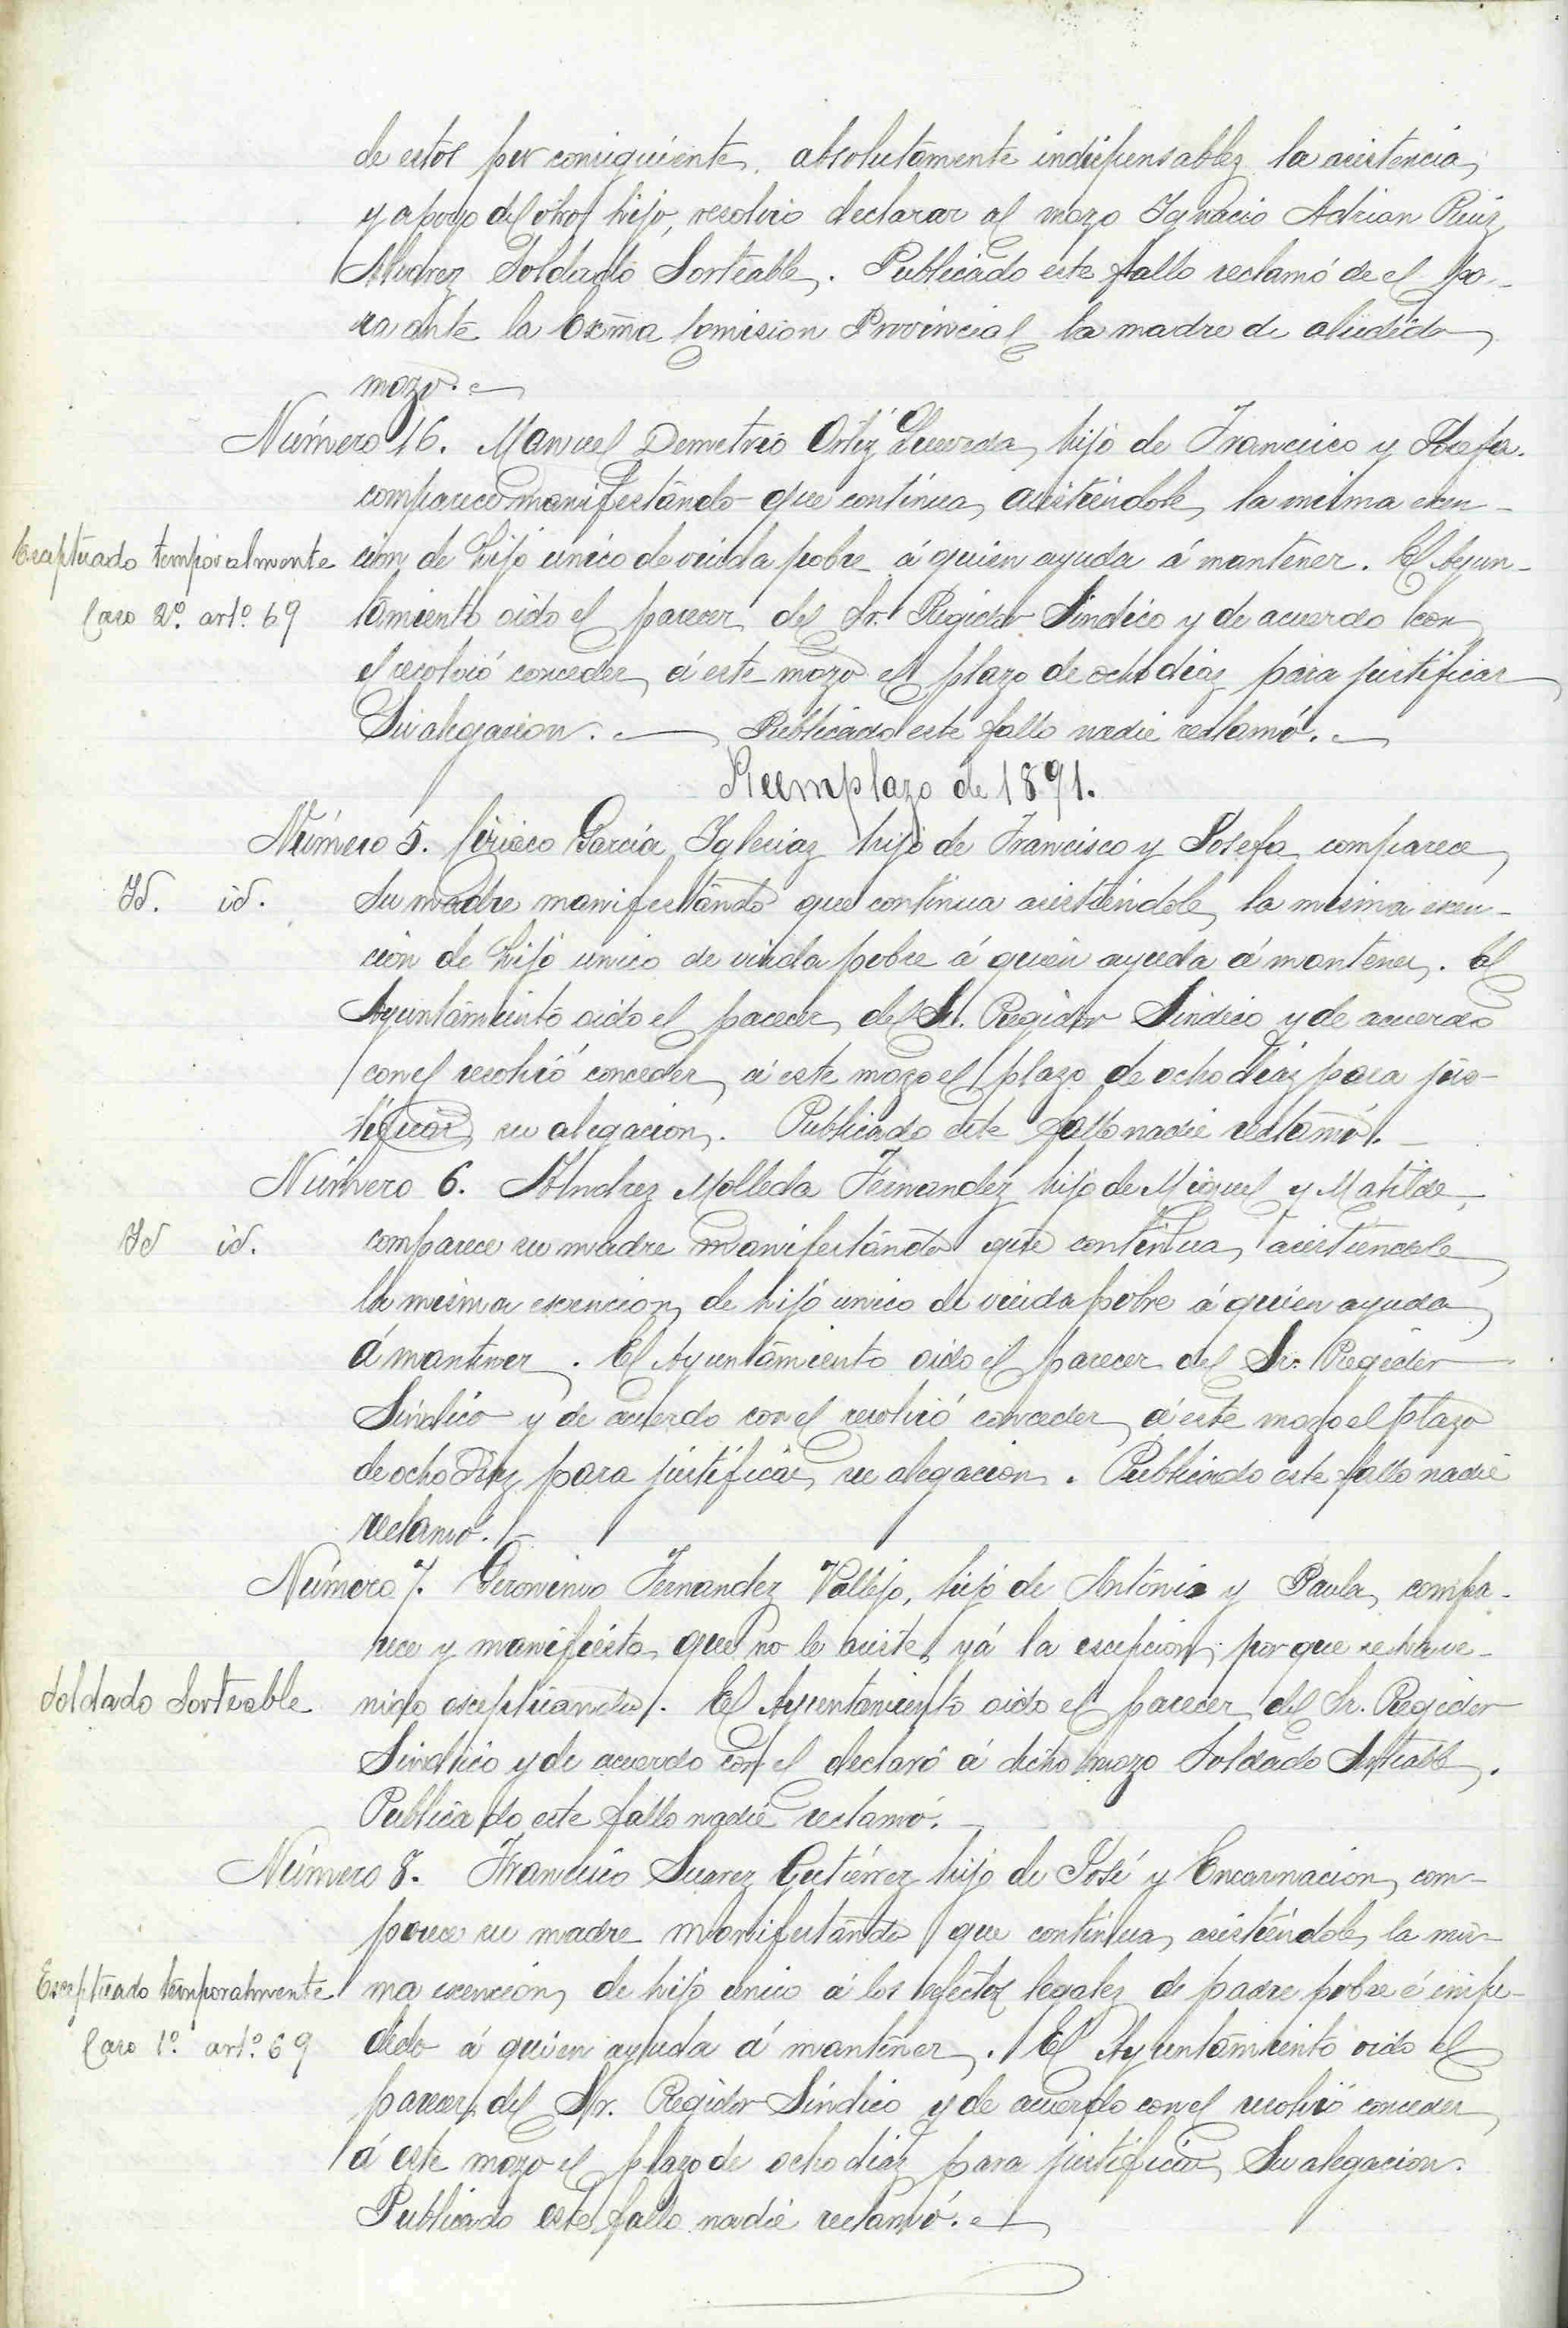 de estos por consiguiente, absolutamente indispensables la asistencia
y apoyo del otro hijo, resolvió declarar al mozo Ignacio Adrian Ruiz
Alvarez Soldado Sorteable. Publicado este fallo reclamó de el pa-
ra ante la Exma Comision Provincial la madre de aludido
mozo.
Número 16. Manuel Demetrio Ortiz hijo de Francisco y Josefa.
comparece manifestando que continua asistiendole la misma exen-
Esceptuado temporalmente
cion de hijo unico de viuda pobre á quien ayuda á mantener. El Ayun-
Caso 2º. artº. 69
tamiento oido el parecer del Sr. Regidor Sindico y de acuerdo con
el resolvió conceder á este mozo el plazo de ocho dias para justificar
Su alegacion. Publicado este fallo nadie reclamó.
Reemplazo de 1891.
Número 5. Ciriaco Garcia Iglesias hijo de Francisco y Josefa comparece
Id. id.
Su madre manifestando que continua asistiendole la misma exen-
cion de hijo unico de viuda pobre á quien ayuda á mantener. El
Ayuntamiento oido el parecer del Sr. Regidor Sindico y de acuerdo
con el resolvió conceder á este mozo el plazo de ocho dias para jus-
tificar su alegacion. Publicado este fallo nadie reclamó.
Número 6. Andrez Molleda Fernandez hijo de Miguel y Matilde,
Id id.
comparece su madre manifestando que continua asistiendole
la misma exencion de hijo unico de viuda pobre á quien ayuda
á mantener. El Ayuntamiento oido el parecer del Sr. Regidor
Sindico y de acuerdo con el resolvió conceder á este mozo el plazo
de ocho dias para justificar su alegacion. Publicado este fallo nadie
reclamó.
Número 7. Geronimo Fernandez Vallejo, hijo de Antonio y Paula, compa-
rece y manifiesta que no le asiste yá la escepcion porque se ha ve-
Soldado Sorteable
nido esceptuando. El Ayuntamiento oido el parecer del Sr. Regidor
Sindico y de acuerdo con el declaró á dicho mozo Soldado Sorteable.
Publicado este fallo nadie reclamó.
Número 8. Francisco Suarez Gutiérrez hijo de José y Encarnacion, com-
parece su madre manifestando que continua asistiendole la mis-
Esceptuado temporalmente
ma exencion de hijo unico á los efectos legales de padre pobre é impe-
Caso 1º. artº. 69
dido á quien ayuda á mantener. El Ayuntamiento oido el
parecer del Sr. Regidor Sindico y de acuerdo con el resolvió conceder
á este mozo el plazo de ocho dias para justificar Su alegacion.
Publicado este fallo nadie reclamó.